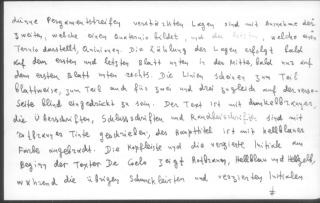 dünne Pergamentstreifen verstärkten Lagen sind mit Ausnahme der
zweiten, welche einen Quaternio bildet, und der letzten, welche einen
Ternio darstellt, Quinionen. Die Zählung der Lagen erfolgt bald
auf dem ersten und letzten Blatt unten in der Mitte, bald nur auf
dem ersten Blatt unten rechts. Die Linien scheinen zum Teil
blattweise, zum Teil auch für zwei und drei zugleich auf der verso-
Seite blind eingedrückt zu sein. Der Text ist mit dunkelbrauner,
die Überschriften, Schlussschriften und Randbeischriften sind mit
rotbrauner Tinte geschrieben, der Haupttitel ist mit hellblauer
Farbe angebracht. Die Kopfleiste und die verzierte Initiale am
Beginn der Textes De Caelo zeigt Rotbraun, Hellblau und Hellgelb,
während die übrigen Schmuckleisten und verzierten Initialen